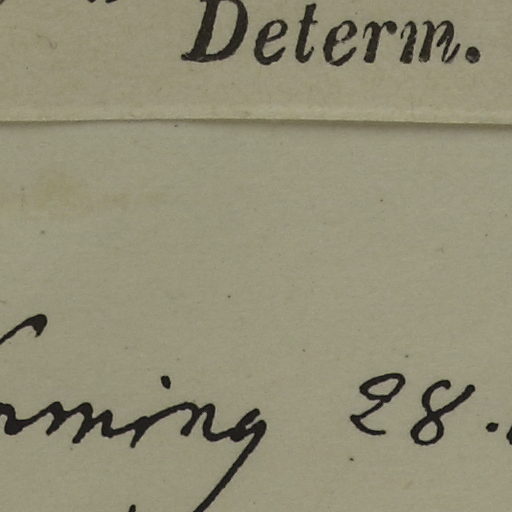 Determ.
rming 28.